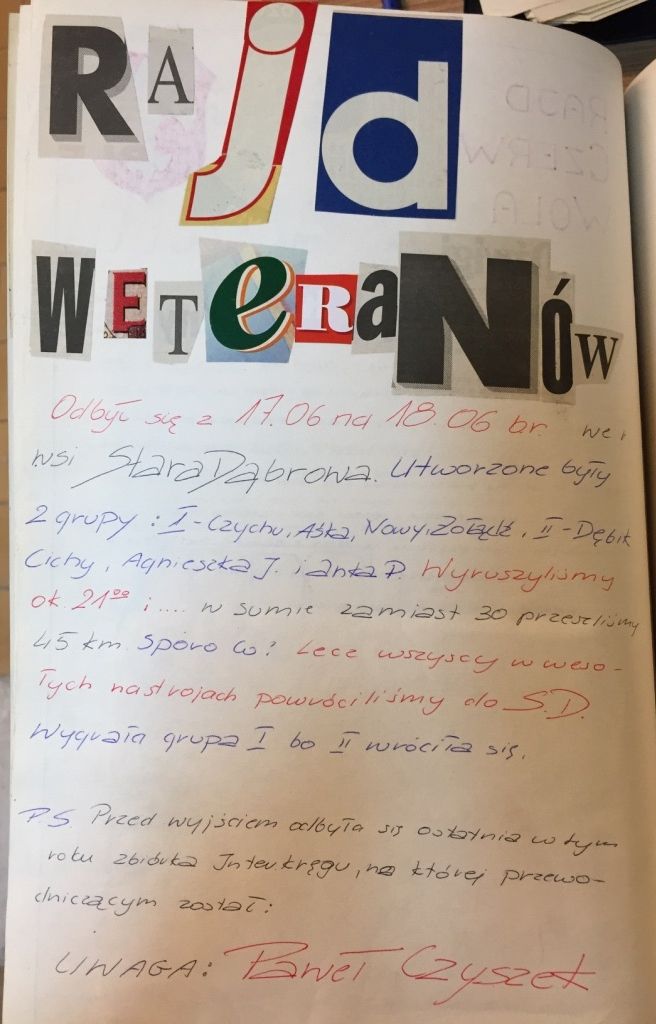 RAjd
WETeRaNÓW
Odbył się z 17.06 na 18.06 br. we
wsi Stara Dąbrowa. Utworzone były
2 grupy : I - Czychu, Aśka, Nowy, Żołądź, II - Dębik
Cichy, Agnieszka J. i anka P. Wyruszyliśmy
ok. 21⁰⁰ i .... w sumie zamiast 30 przeszliśmy
45 km. Sporo co? Lecz wszyscy w weso-
łych nastrojach powróciliśmy do S.D.
Wygrała grupa I bo II wróciła się.
P.S. Przed wyjściem odbyła się ostatnia w tym
roku zbiórka Interkręgu, na której przewo-
dniczącym został:
UWAGA: Paweł Czyszek
RAJD
CZERW
WOLA